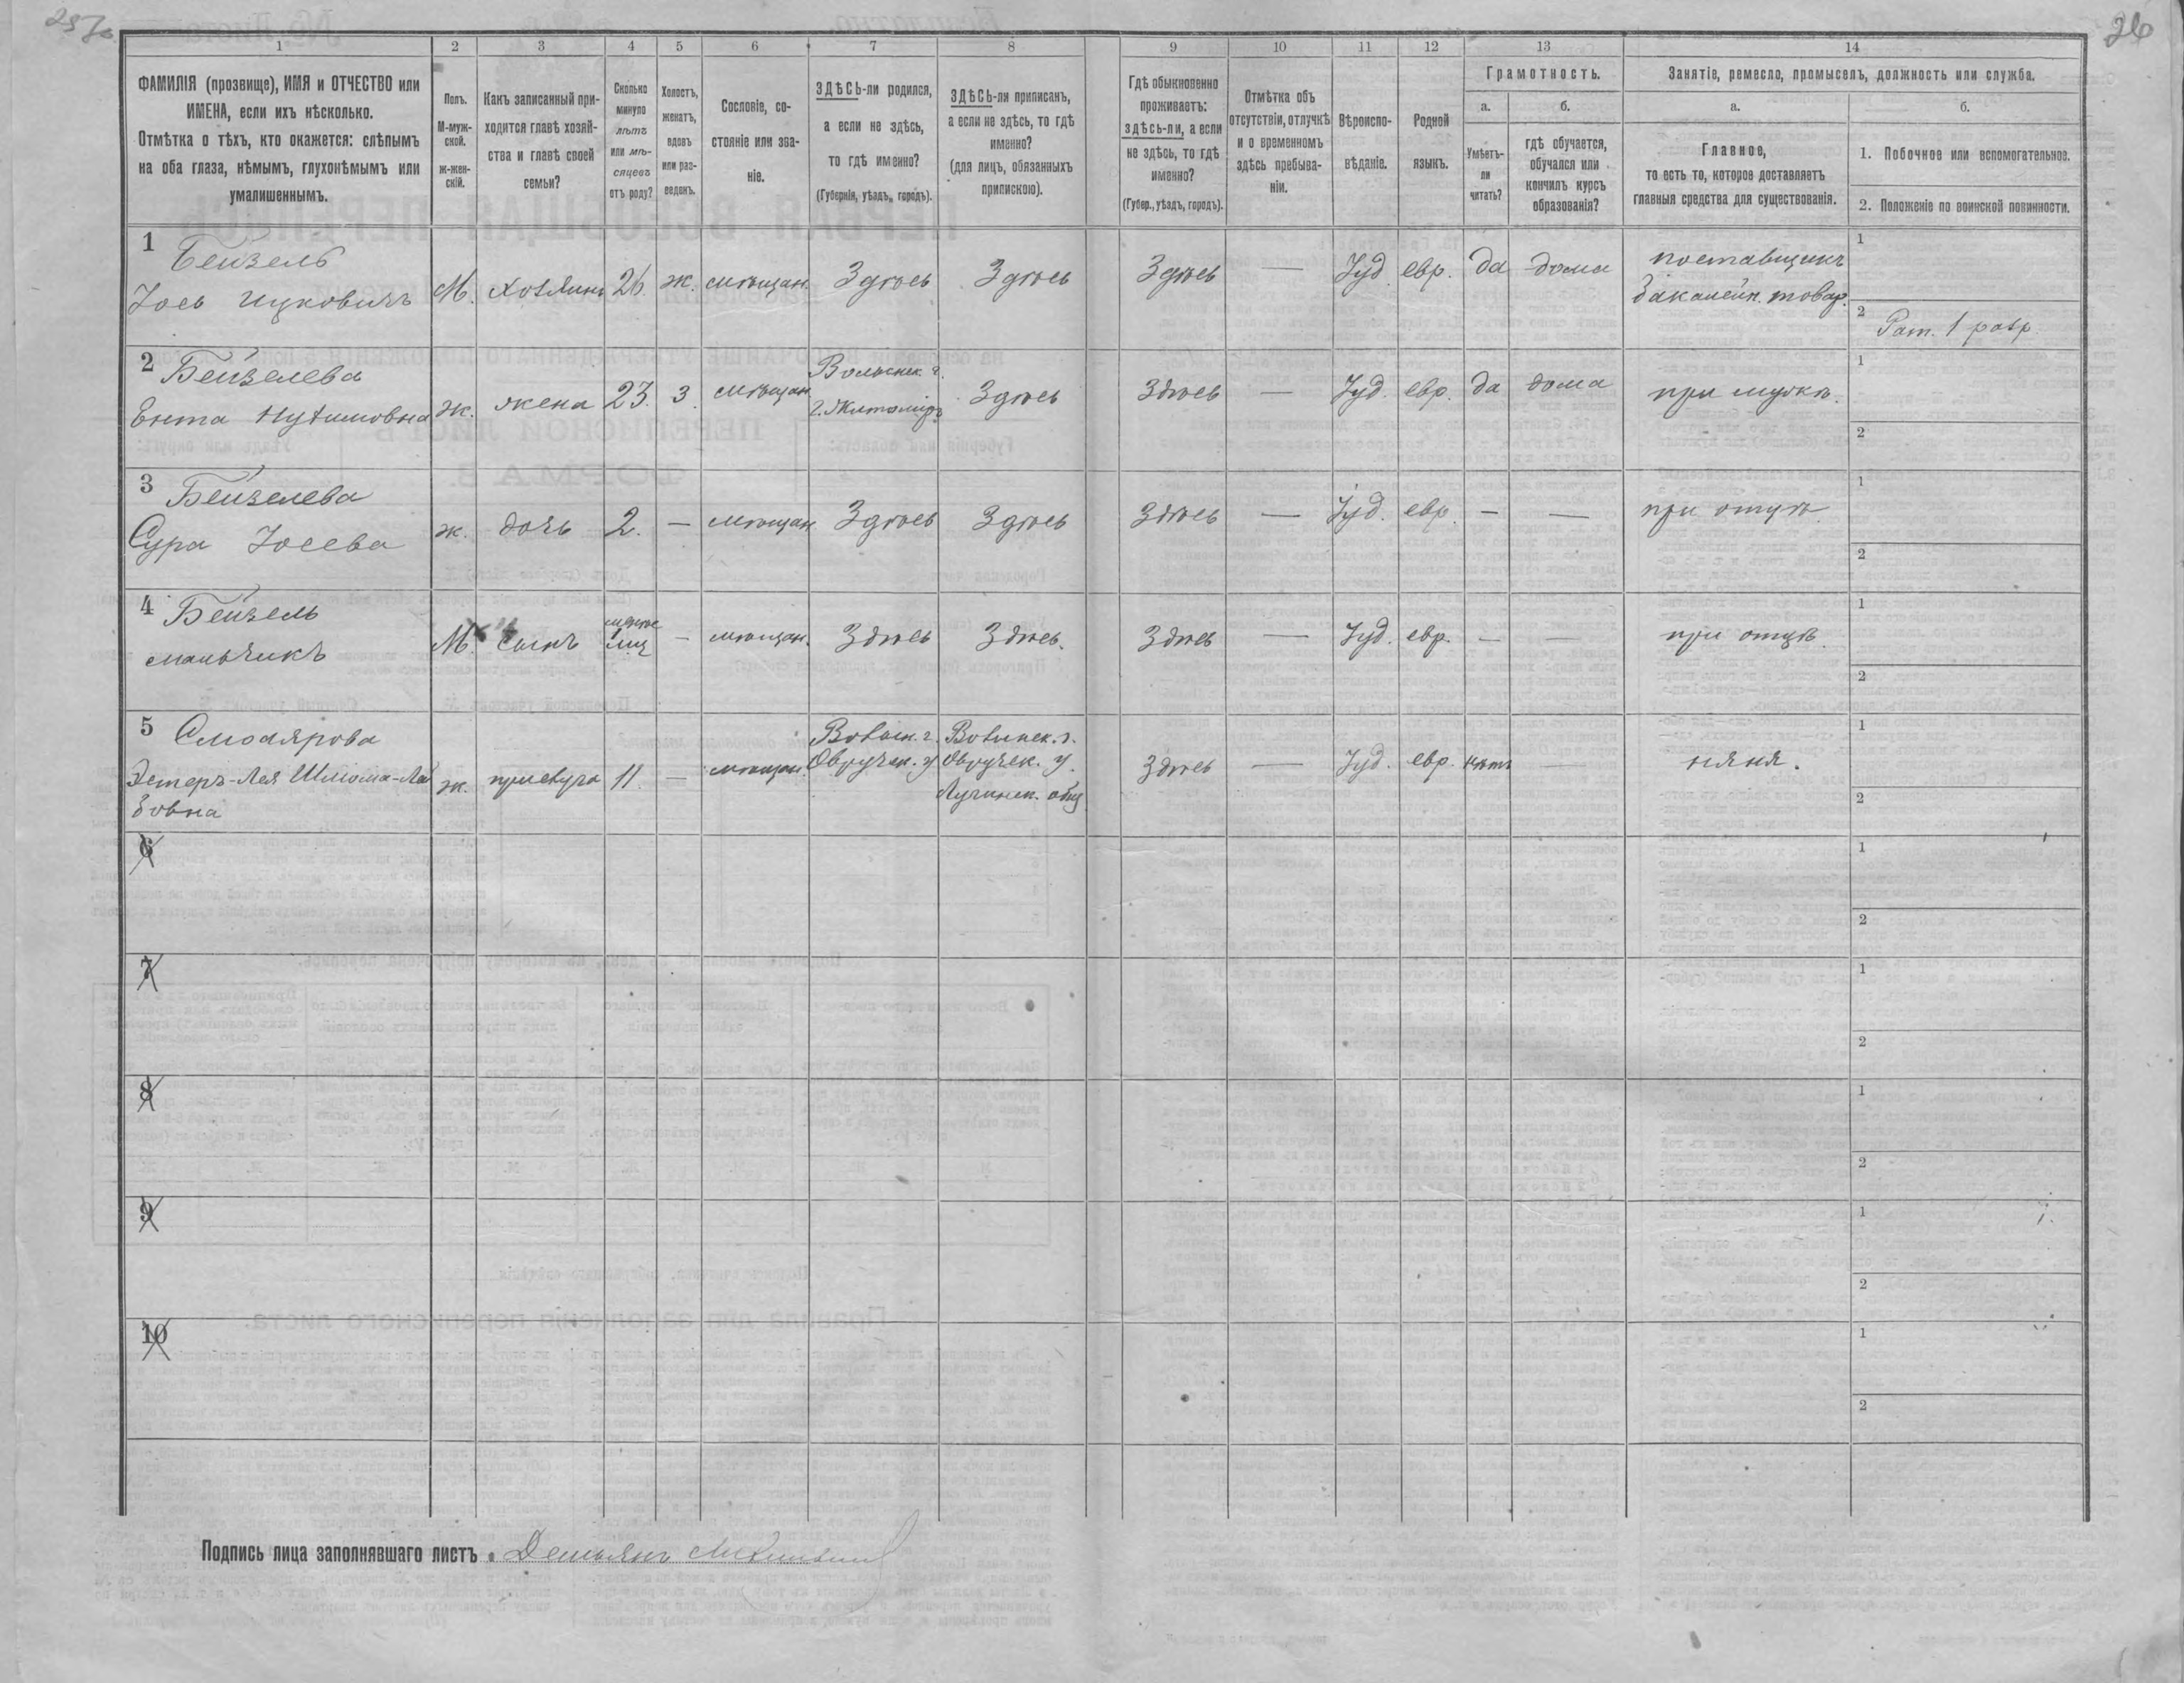 26
1 2 3 4 5 6 7 8 9 10 11 12 13 14
ФАМИЛІЯ (прозвище), ИМЯ и ОТЧЕСТВО или
ИМЕНА, если ихъ нѣсколько.
Отмѣтка о тѣхъ, кто окажется: слѣпымъ
на оба глаза, нѣмымъ, глухонѣмымъ или
умалишеннымъ.
Полъ.
М-муж-
ской.
ж-жен-
скій.
Какъ записанный при-
ходится главѣ хозяй-
ства и главѣ своей
семьи?
Сколько
минуло
лѣтъ
или мѣ-
сяцевъ
отъ роду?
Холостъ,
женатъ,
вдовъ
или раз-
веденъ.
Сословіе, со-
стояніе или зва-
ніе.
ЗДѢСЬ-ли родился,
а если не здѣсь,
то гдѣ именно?
(Губернія, уѣздъ, городъ).
ЗДѢСЬ-ли приписанъ,
а если не здѣсь, то гдѣ
именно?
(для лицъ, обязанныхъ
припискою).
Гдѣ обыкновенно
проживаетъ:
здѣсь-ли, а если
не здѣсь, то гдѣ
именно?
(Губер., уѣздъ, городъ).
Отмѣтка объ
отсутствіи, отлучкѣ
и о временномъ
здѣсь пребыва-
ніи.
Вѣроиспо-
вѣданіе.
Родной
языкъ.
Грамотность.
а.
Умѣетъ-
ли
читать?
б.
гдѣ обучается,
обучался или
кончилъ курсъ
образованія?
Занятіе, ремесло, промыселъ, должность или служба.
а.
Главное,
то есть то, которое доставляетъ
главныя средства для существованія.
б.
1. Побочное или вспомогательное.
2. Положеніе по воинской повинности.
1 Бейзель
Іось Ицковичъ М. хозяинъ 26. ж. мѣщан. Здѣсь Здѣсь Здѣсь — Іуд. евр. да дома поставщикъ
бакалейн. товар.
1
2 Рат. 1 разр.
2 Бейзелева
Ента Нухимовна ж. жена 23. З. мѣщан. Волынск. г.
г. Житоміръ Здѣсь Здѣсь — Іуд. евр. да дома при мужѣ.
1
2
3 Бейзелева
Сура Іосева ж. дочь 2. — мѣщан. Здѣсь Здѣсь Здѣсь — Іуд. евр. — — при отцѣ
1
2
4 Бейзель
мальчикъ М. сынъ менѣе
1 мца — мѣщан. Здѣсь Здѣсь. Здѣсь — Іуд. евр. — — при отцѣ.
1
2
5 Смолярова
Эстеръ-Лея Шлёма-Лей
бовна ж. прислуга 11. — мѣщан. Волын. г.
Овручск. у. Волынск. г.
Овручск. у.
Лугинск. общ Здѣсь — Іуд. евр. нѣтъ — няня.
1
2
6
1
2
7
1
2
8
1
2
9
1
2
10
1
2
Подпись лица заполнявшаго листъ Демьянъ